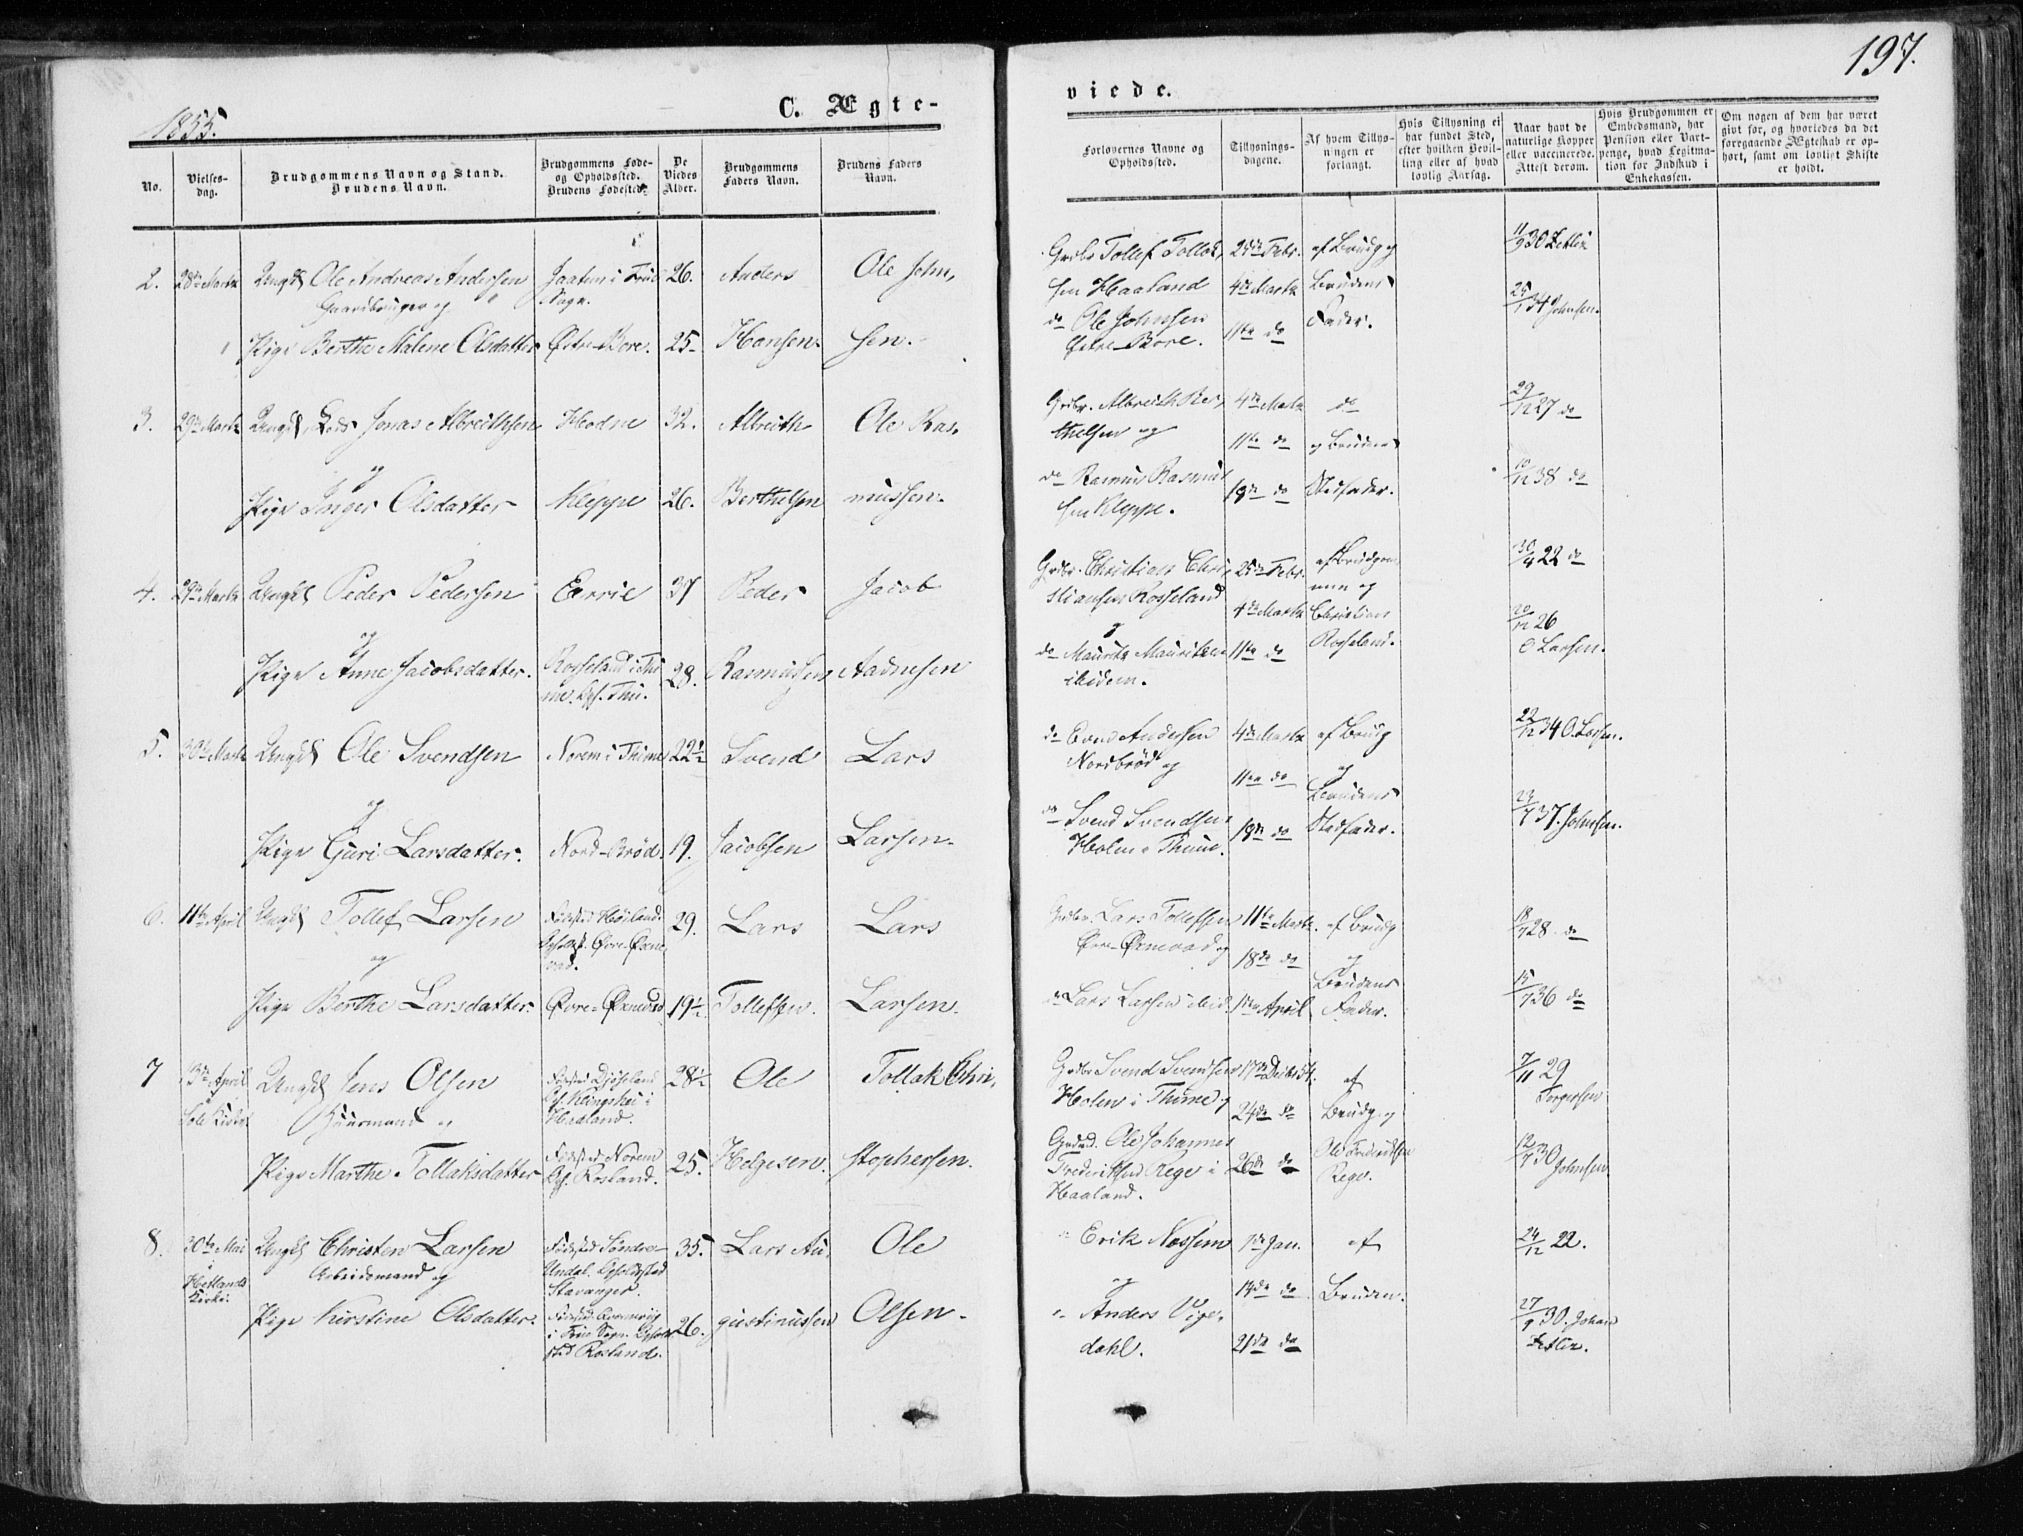 1855.
C. Ægte-
No.
Vielses-
dag.
Brudgommens Navn og Stand.
Brudens Navn.
Brudgommens Føde-
og Opholdssted.
Brudens Fødested.
De
Viedes
Alder.
Brudgommens
Faders Navn.
Brudens Faders
Navn.
2. 28de Marts Ungk Ole Andreas Andersen Jaatun i Frue 26. Anders Ole John,
Gaardbruger og Sogn.
Pige Berthe Malene Olsdatter Østre-Bore. 25. Hansen. sen.
3. 29de Marts Ungk Jonas Albrethsen Hodne 32. Albreth Ole Ras,
og
Pige Inger Olsdatter Kleppe 26. Berthelsen mussen.
4. 29de Marts Ungk Peder Pedersen Eerrie 37 Peder Jacob
og
Pige Anne Jacobsdatter. Rosseland i Thi 28. Rasmussen Aadnesen
me
5. 30te Marts Ungk Ole Svendsen Norem i Thime 22½ Svend Lars
og
Pige Guri Larsdatter. Nord-Brød. 19. Jacobsen Larsen.
6. 11te April Ungk Tollef Larsen Fødested Høiland. 29. Lars Lars
og
Pige Berthe Larsdatter. Øvre-Øxnevad 19½ Tollefsen. Larsen.
7 13de April Ungk Jens Olsen 28½ Ole Tollak Chri,
Sole Kirke Huusmand og Hetland.
Pige Marthe Tollaksdatter Fødested Norem 25. Helgesen. stophersen.
Rosland.
8. 30te Mai Ungk Christen Larsen Fødested Søndre- 35. Lars Au, Ole
i Arbeidsmand og Undal. Opholdssted
Hetlands Stavanger.
Kirke.
Pige Kirstine Olsdatter. 26. gustinussen Olsen.
i Frue Sogn.
sted Rosland.
197.
viede.
Forlovernes Navne og
Opholdssted.
Tillysnings-
dagene.
Af hvem Tillys-
ningen er
forlangt.
Hvis Tillysning ei
har fundet Sted,
efter hvilken Bevil-
ling eller af hvad
lovlig Aarsag.
Naar havt de
naturlige Kopper
eller vaccinerede.
Attest derom.
Hvis Brudgommen er
Embedsmand, har
Pension eller Vart-
penge, hvad Legitima-
tion for Indskud i
Enkekassen.
Om nogen af dem har været
givt før, og hvorledes da det
foregaaende Ægteskab er op-
hørt, samt om lovligt Skifte
er holdt.
Grbr Tollef Tollef, 25de Febr. af Brudg og 11/9 30 Zetliz
sen Haaland 4de Marts Brudens
do Ole Johnsen 11te do Fader. 25/1 34 Johnsen.
Østre Bore.
Grbr. Albreth Ber, 4de Marts do 29/12 27 do
thelsen og 11te do og Brudens
do Rasmus Rasmus 18de do Stedfader. 10/12 38 do
sen Kleppe.
Grbr. Christian Chri, 25de Febr. af Brudgom 30/4 22 do
stiansen Rosseland men og
og 4de Marts Christian 20/12 26
do Mauritz Mauritzen 11te do Rosseland. O Larsen.
ibidem.
do Evend Andersen 4de Marts af Brudg 22/12 34 O. Larsen.
Nordbrød og 11te do og
do Svend Svendsen Brudens 23/7 37. Johnsen.
Holen i Thime. 18de do Stedfader.
Grbr. Lars Tollefsen 11te Marts. af Brudg 18/7 28. do
Øvre-Øxnevad og 18de do og
do Lars Larsen ibid. 1ste April Brudens 15/7 36 do
Fader.
Grbr Svend Svendsen 17de Decbr 54. af 7/11 29
Holen i Thime og 24de do Brudg. og Torgersen
Ole Johannes 26de do Ole Fredriksen 12/7 30
Frederiksen Rege i Rege. Johnsen
Haaland.
" Erik Nessem 7de Jan. af 24/12 22.
og 14de do Bruden.
" Anders Vige, 27/9 30. Johan
dahl. 21de do Zetliz.